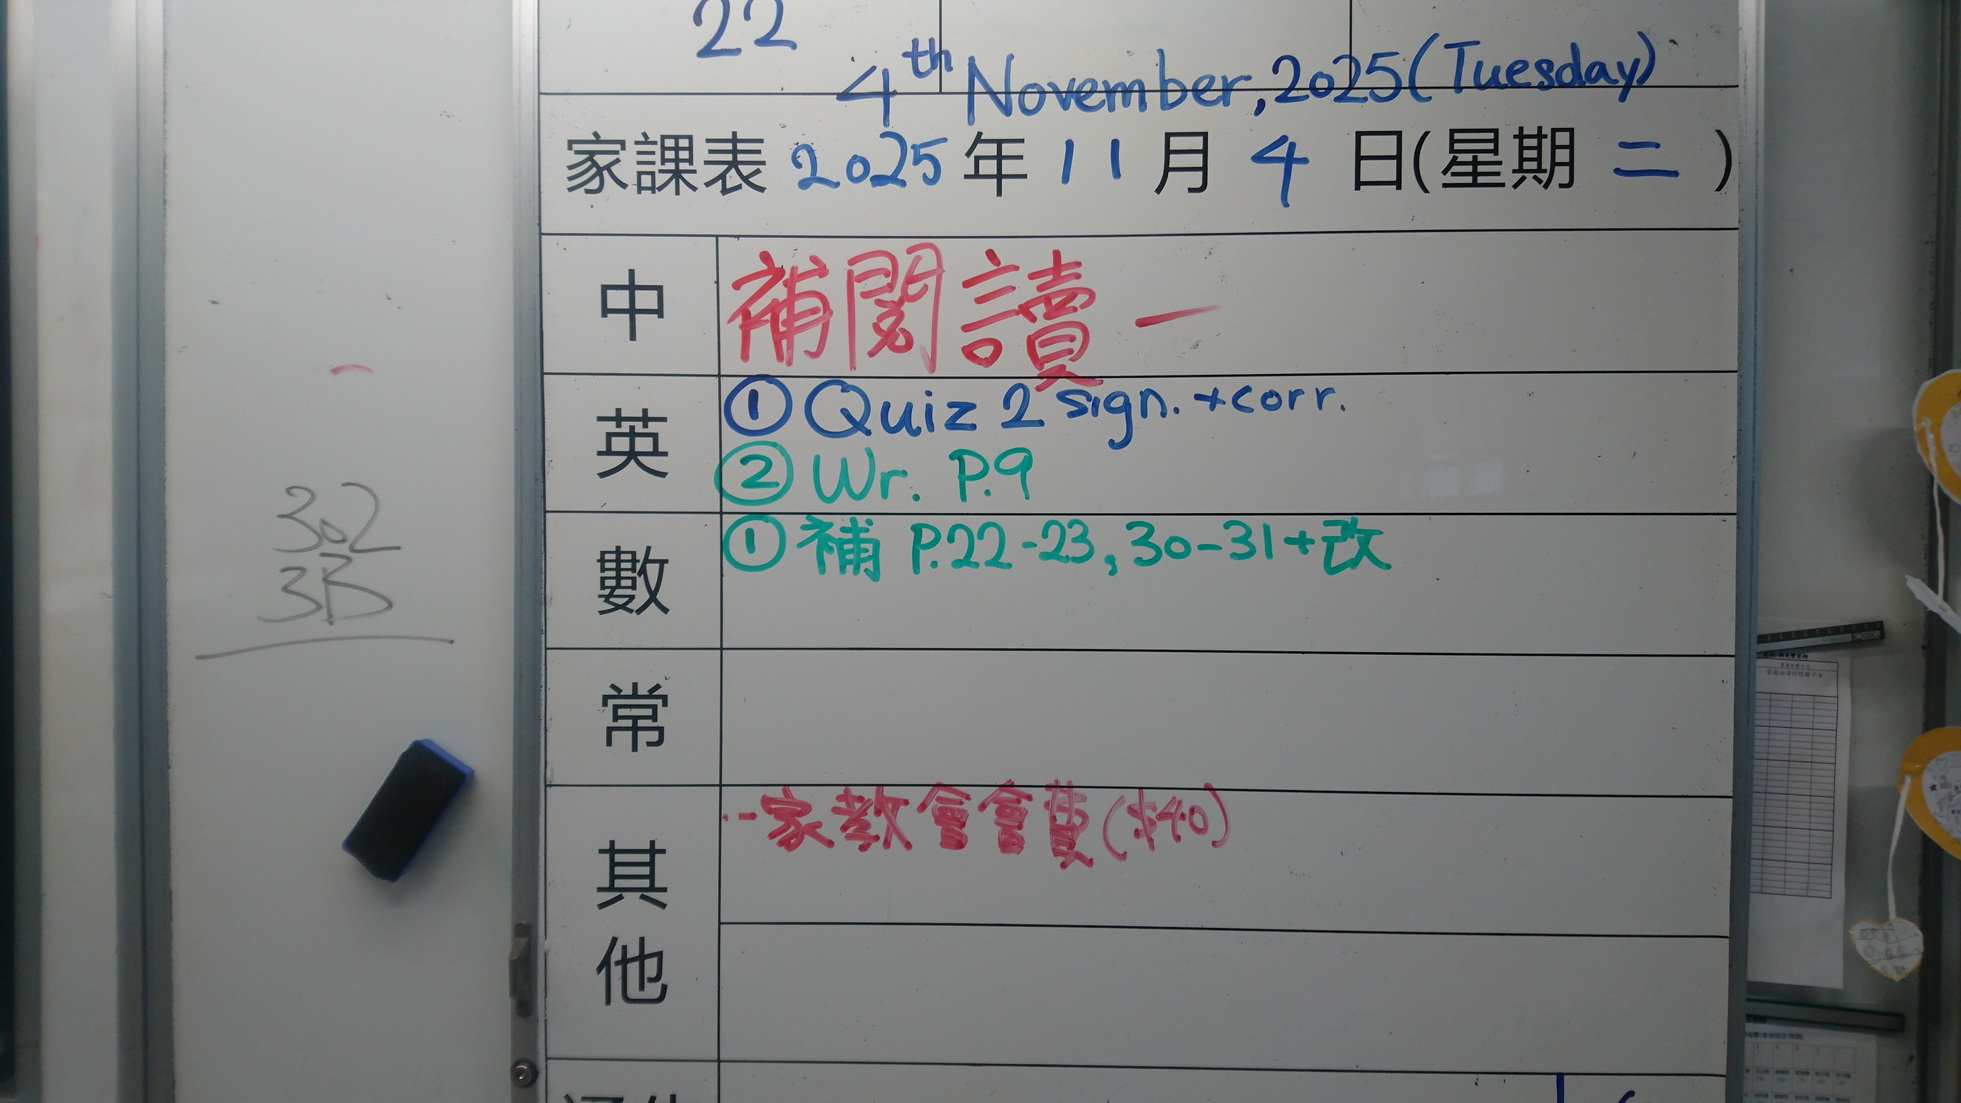 22
4th November, 2025 (Tuesday)
家課表 2025 年 11 月 4 日(星期 二 )
中 補閱讀一
英 ① Quiz 2 sign. + corr.
② Wr. P.9
數 ① 補 P.22-23, 30-31+改
常
其他 家教會會費($40)
302
3B